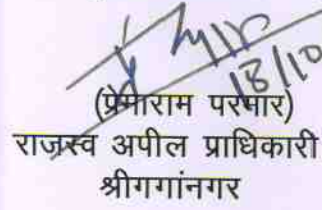 18/10
(प्रेमाराम परमार)
राजस्व अपील प्राधिकारी
श्रीगगांनगर